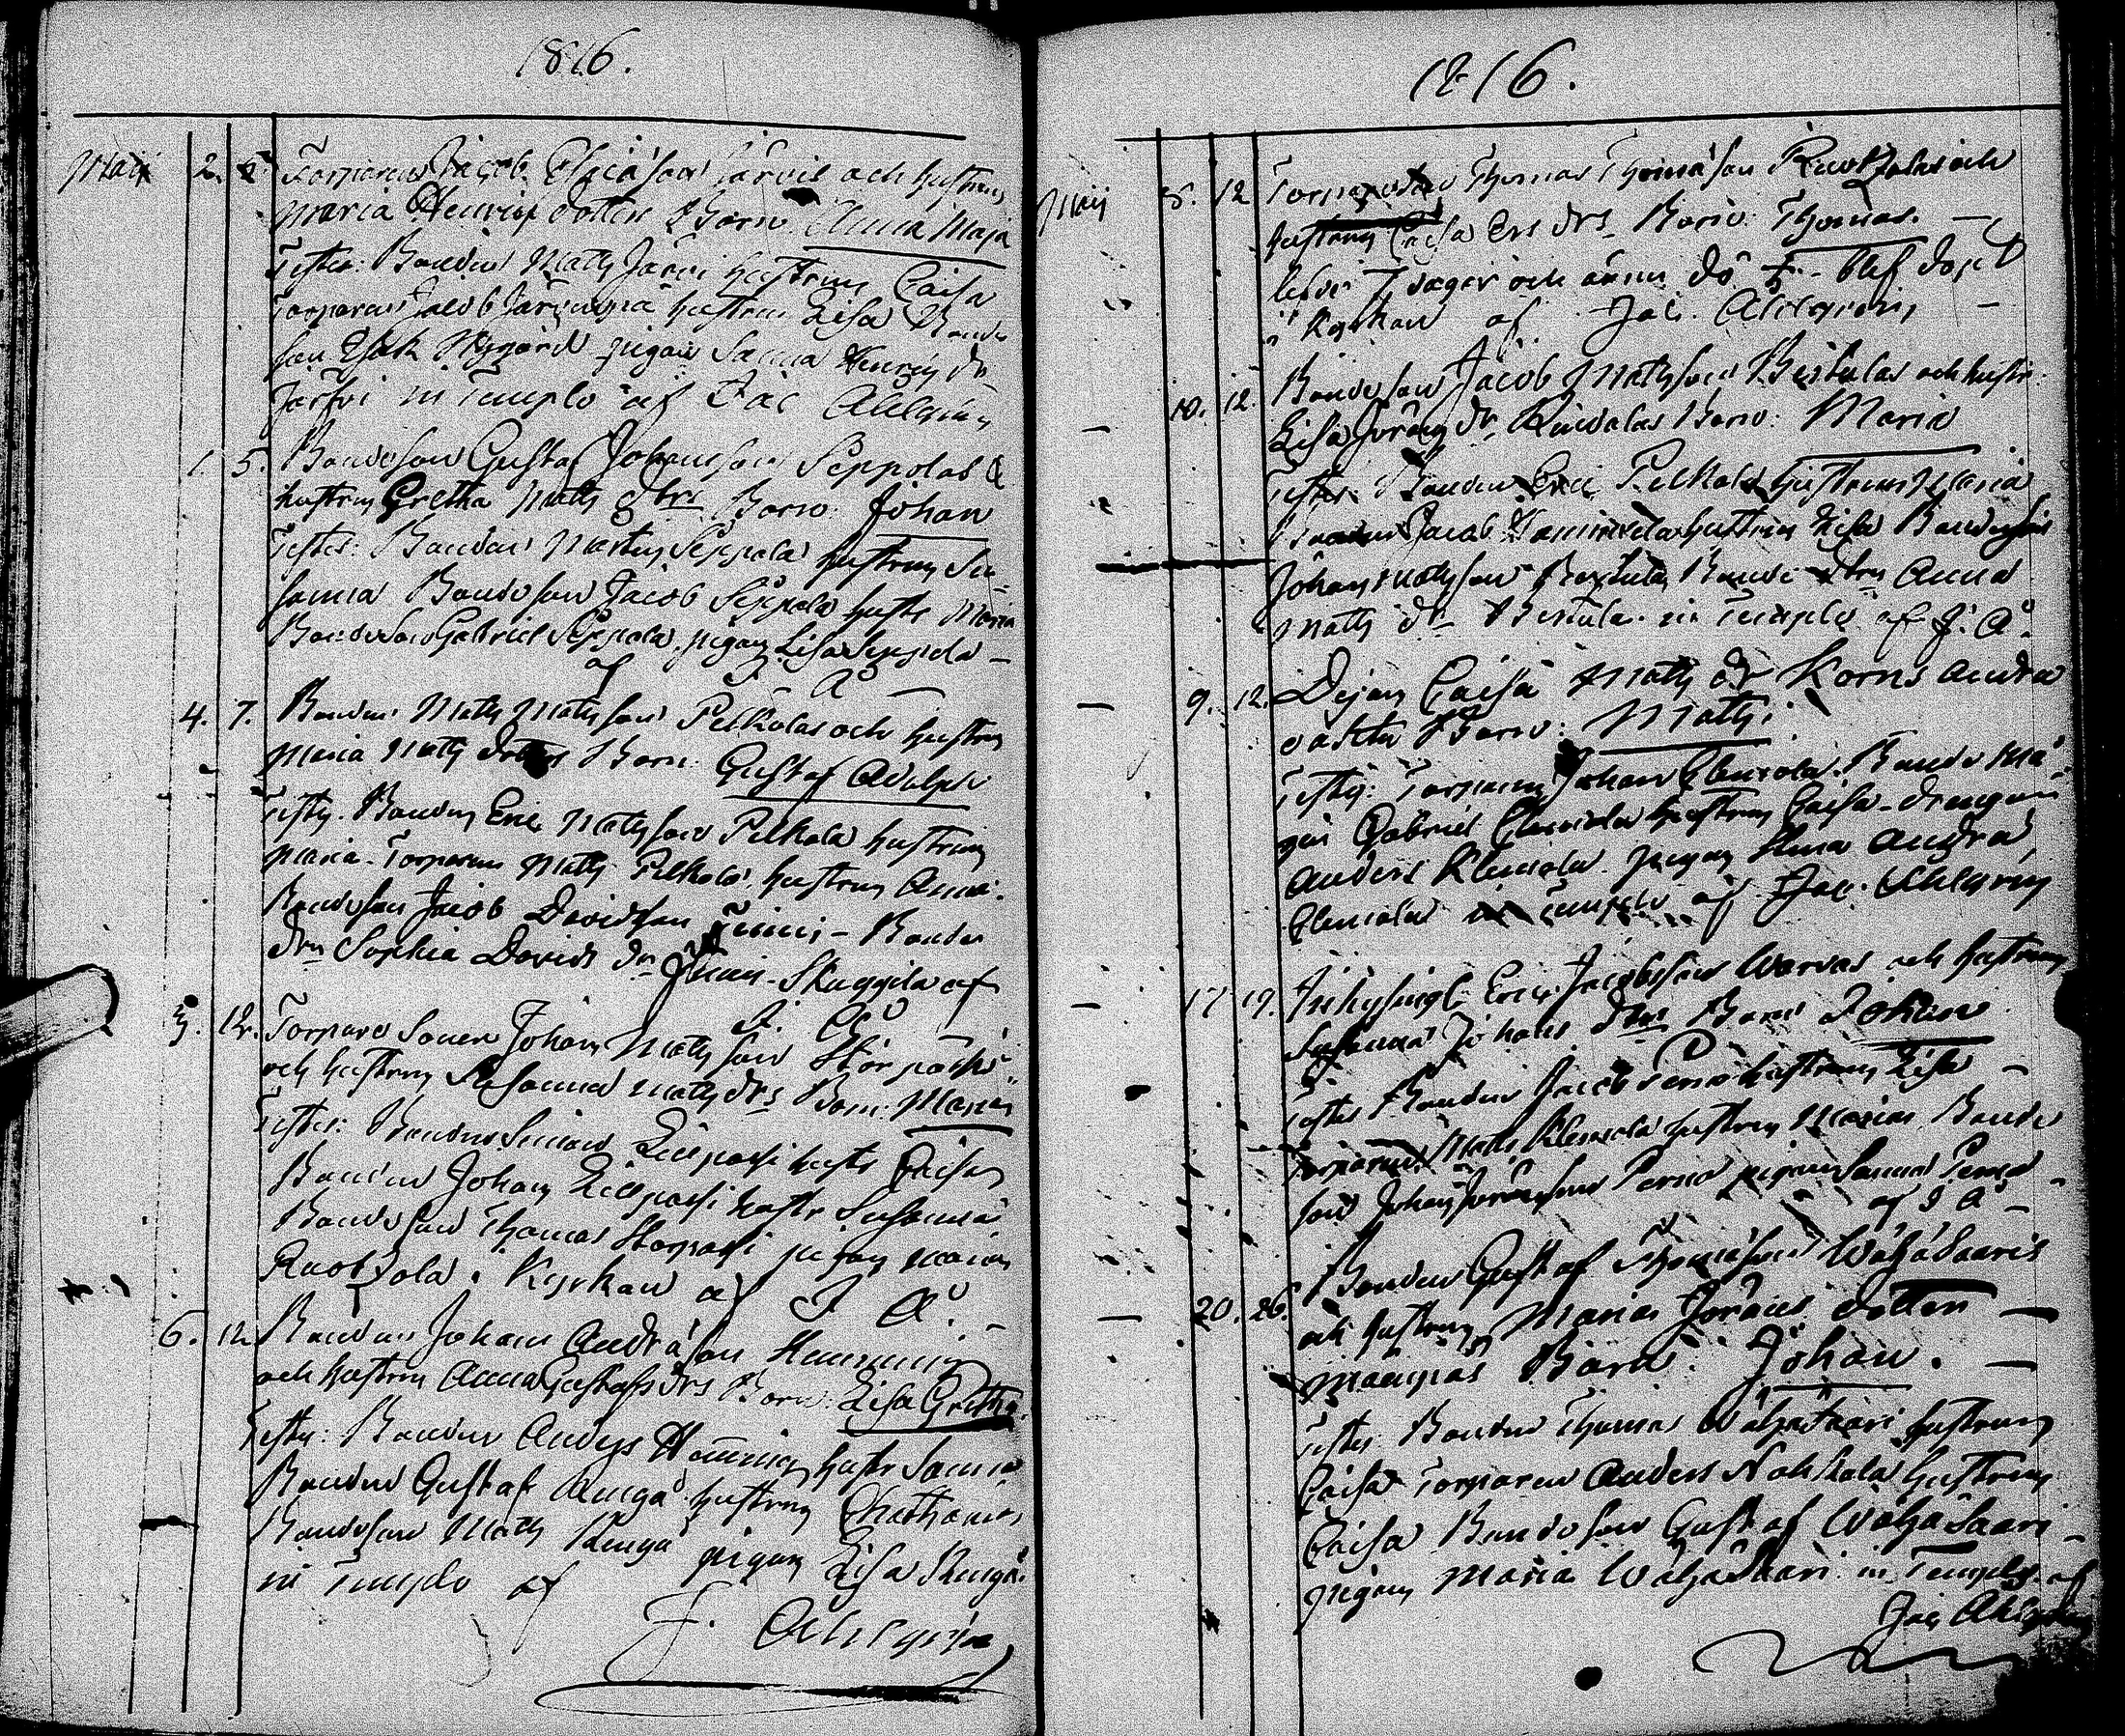 1816.
Maii 2. 5. Torparen Jacob Elia son Järvis och hustrun
Maria Henrics dotters Barn: Anna Maja
Testes: Bonden Matts Järvi hustrun Caisa
Torparen Jacob hustrun Lisa Bonde
son Isak Nygård pigan Sanna Henrics dr
Järfvi in Templo af Jac Ahlgren
1. 5. Bondeson Gustaf Johansson Seppälas &
hustrun Gretha Matts dtrs Barn: Johan
Testes: Bonden Martin Seppälä hustrun Su-
sanna Bondeson Jacob Seppälä hustr Maria
Bondeson Gabriel Seppälä, pigan Lisa Seppälä –
af J. A. –
4. 7. Bonden Matts Mattsson Pelkolas och hustrun
Maria Matts dotters Barn: Gustaf Adolph
Testes. Bonden Eric Mattsson Pelkola hustrun
Maria – Torparen Matts Pelkola hustrun Anna.
Bondeson Jacob Davidsson – Bonde
drn Sophia Davids dr – af
J. A.
5. 12. Torpare sonen Johan Mattsson Storpasis
och hustrun Susanna Matts drs Barn: Maria
Testes: Bonden Simon Lillpasi hustr Caisa
Bonden Johan Lillpasi hustr Susanna
Bondeson Thomas Storpasi pigan Maria
Ruokjola. Kyrkan af J. A. –
6. 12. Bonden Johan Andrä son Hemming
och hustrun Anna Gustafs drs Barn: Lisa Gretha.
Testes: Bonden Anders Hemming hustr Sanna
Bonden Gustaf hustrun Chatharina
Bondeson Matts pigan Lisa
in Templo af
J. Ahlgren
1816.
Maii 5. 12 Torparen Thomas Thomason Ruokjolas och
hustrun Caisa Ers drs Barn: Thomas. –
lefde 7 dagar och dö – blef döpt
i Kyrkan af Jac. Ahlgren –
– 10. 12. Bondeson Jacob Mattsson Bertulas och hustr:
Lisa Jörans dr Barn: Maria
Testes: Bonden Eric Pelkola hustrun Maria
Bonden Jacob hustrun Lisa Bondeson
Johan Mattsson Bertula, Bonde dtrn Anna
Matts dr Bertula. in Templo af J. A.
– 9. 12. Pigan Caisa Matts dr Korns andra
oäkta Barn: Matts:
Testes: Torparen Johan Clemola. Bonde må-
gen Gabriel Clemola hustrun Caisa – drängen
Anders Klemola. pigan Anna Andrä
Clemola in Templo af Jac. Ahlgren
– 17 19. Inhysingl: Eric Jacobsson Warvas och hustrun
Susanna Johans dtrs Barn Johan
Testes Bonden Jacob Perno hustrun Lisa –
Torparen Matts Klemola hustrun Maria Bonde
son Johan Jöransson Perno pigan Sanna Perno –
af J A –
Bonden Gustaf Thomason Wähäsaaris
– 20. 26. och hustrun Maria Jörans dotter –
Barn: Johan. –
Testes Bonden Thomas Wähäsaari hustrun
Caisa Torparen Anders hustrun
Caisa Bondeson Gustaf Wähäsaari –
pigan Maria Wähäsaari in Templo af
Jac Ahlgren